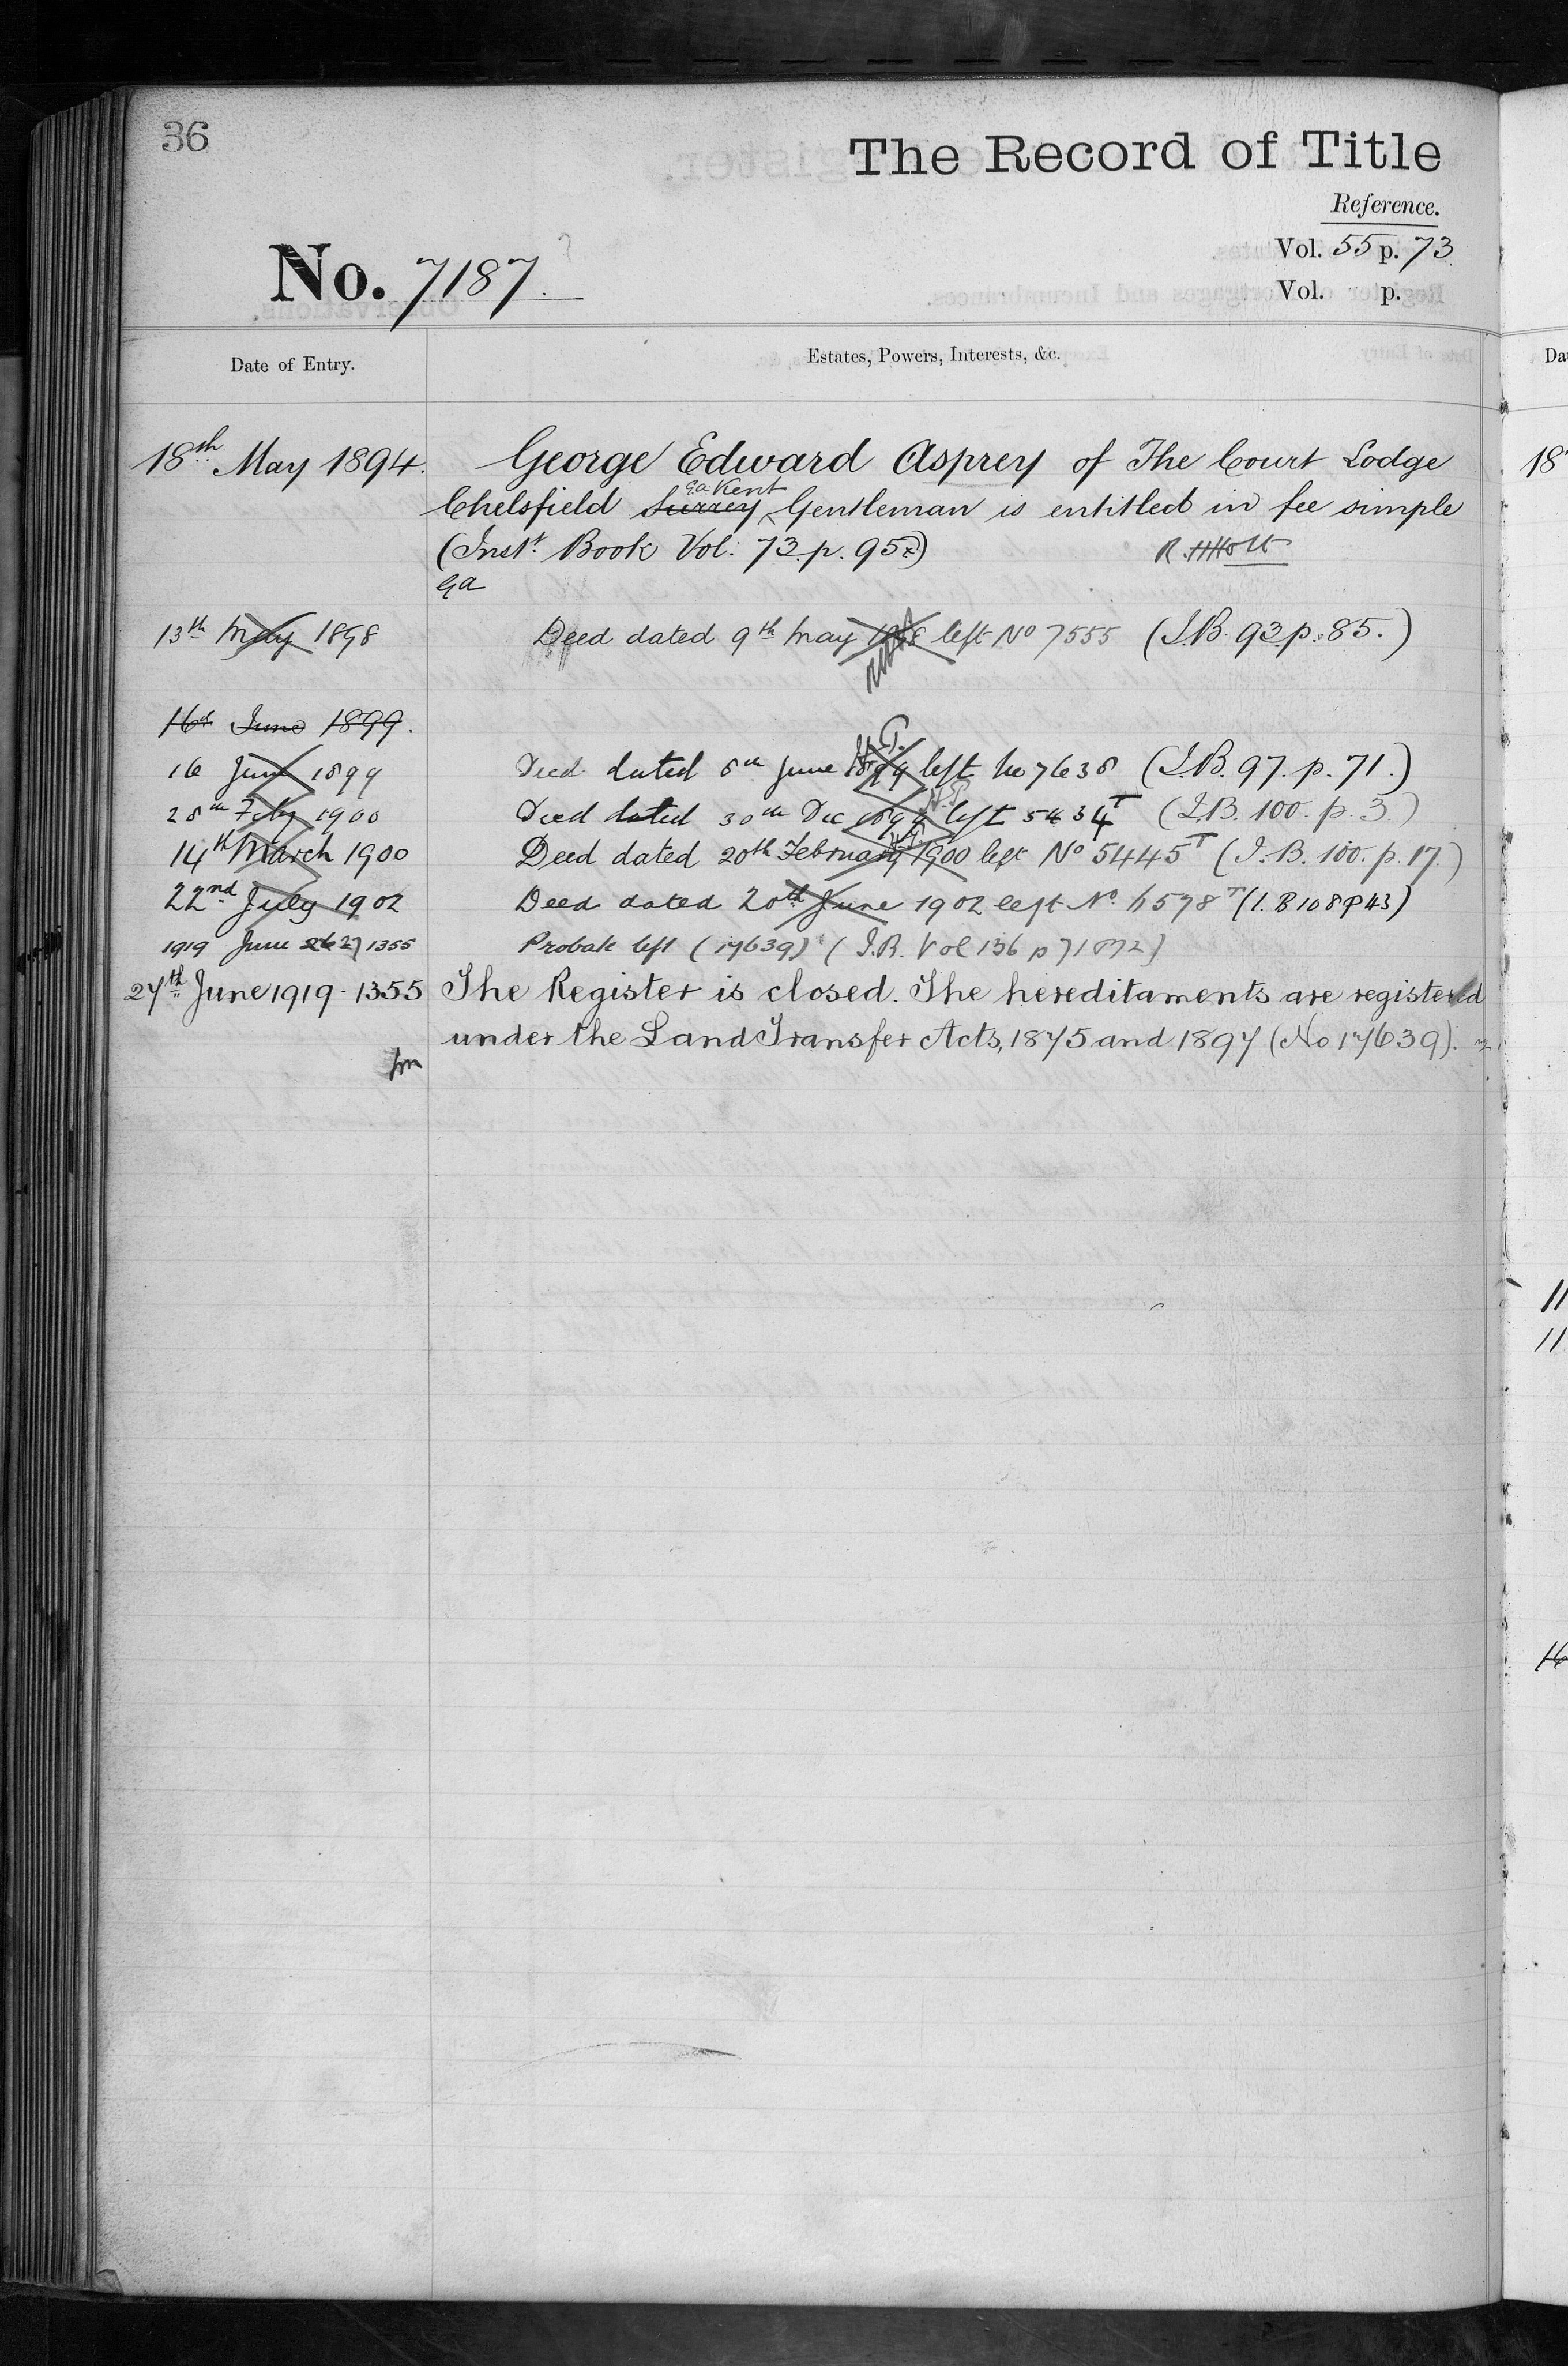 36
The Record of Title
Reference.
Vol. 55 p. 73
No. 7187.
Vol. p.
Date of Entry.
Estates, Powers, Interests, &c.
18th May 1894. George Edward Asprey of The Court Lodge
G.a. Kent
Chelsfield Surrey Gentleman is entitled in fee simple
(Inst. Book Vol: 73. p. 95) R. H Holt
Ga
13th May 1898 Deed dated 9th May 1898 left No 7555 (I.B. 93. p. 85.)
16th June 1899.
16 June 1899 Deed dated 8th June 1899 left No 7638 (I.B. 97. p. 71.)
28th Feby 1900 Deed dated 30th Dec 1899 left 5434T (I.B. 100. p. 3.)
14th March 1900 Deed dated 20th February 1900 left No 5445T (I.B. 100. p. 17.)
22nd July 1902 Deed dated 20th June 1902 left No. 6578T (I. B 108 P 43)
1919 June 26 27 1355 Probate left (17639) (I.B. Vol 136 p 71 & 72)
27th June 1919 - 1355 The Register is closed. The hereditaments are registered
under the Land Transfer Acts, 1875 and 1897 (No 17639).